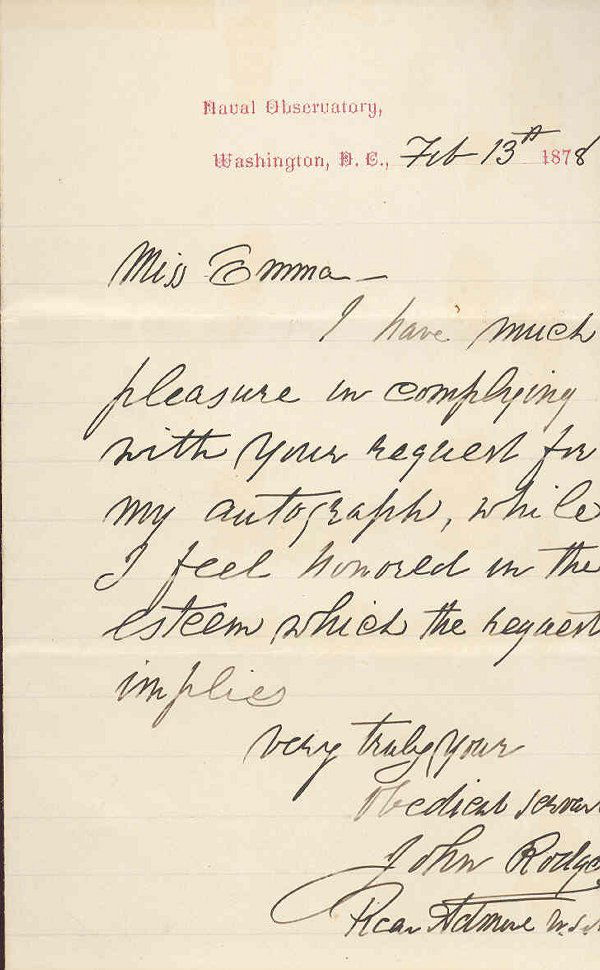 Naval Observatory,
Washington, D. C., Feb 13th 1878
Miss Emma—
I have much
pleasure in complying
with your request for
my autograph, while
I feel honored in the
esteem which the request
implies
very truly your
obedient servan
John Rodge
Rear Admire U.S.N